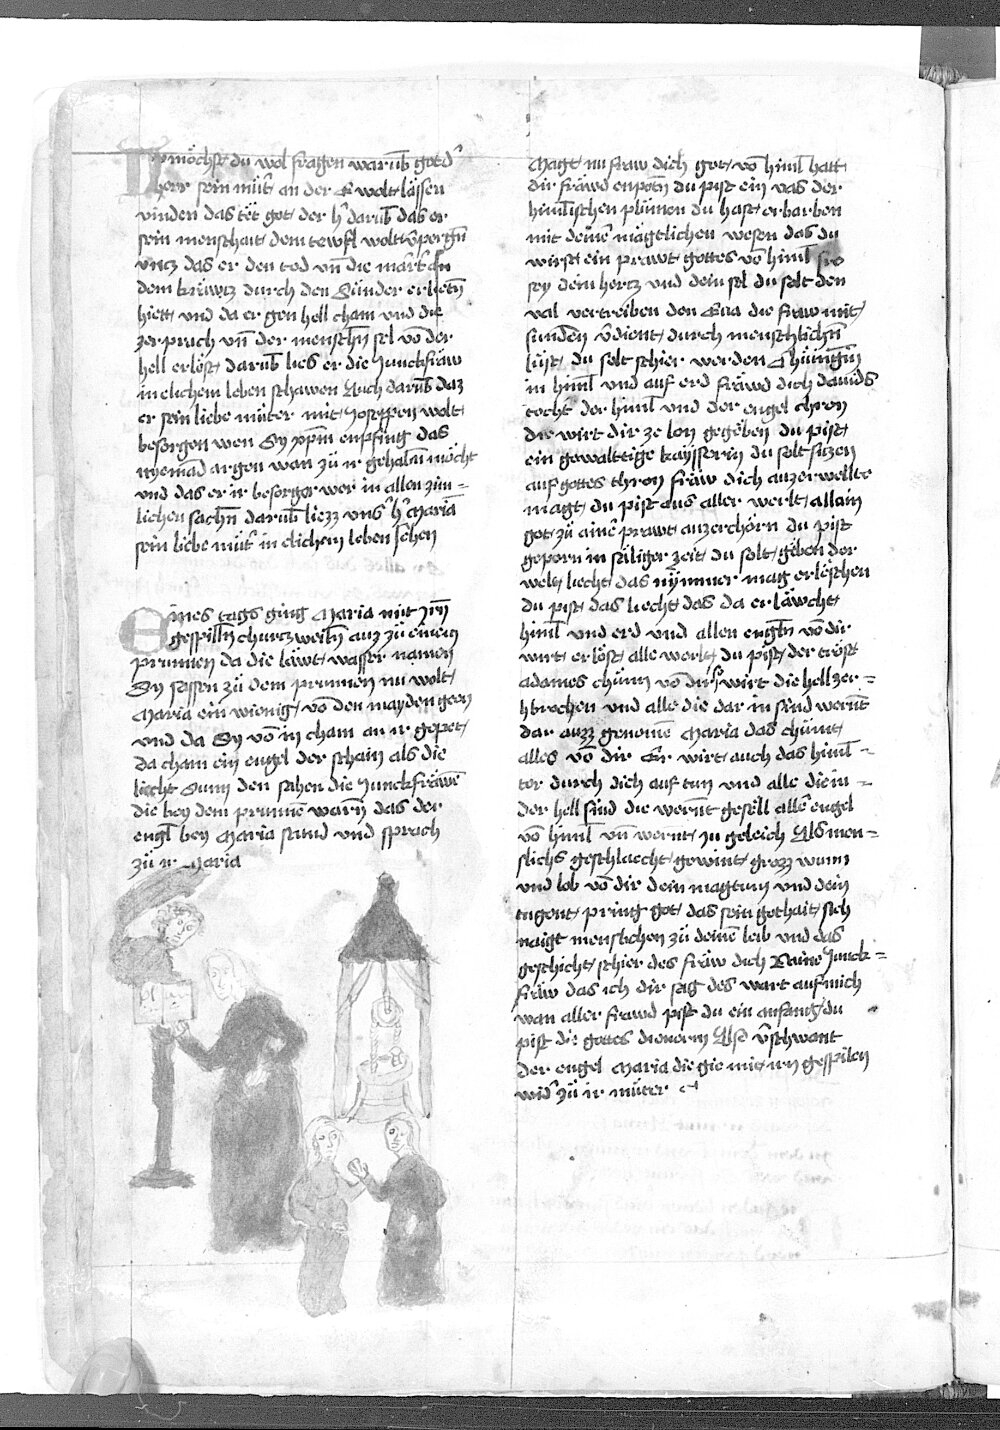 Nu möchst du wol fragen warūb got d'
herr sein mūt' an der E wolt lässen
vinden das tët got der h' darūb das er
sein menschait dem tewfl wolt v'pergn̄
vncz das er den tod vn̄ die mart' an
dem kräwtz durch den Sünder erlietn̄
hiett vnd da er gen hell cham vnd die
zerprach vn̄ der menschn̄ sel vō der
hell erlöst darūb lies er die Junckfräw
in elichem leben schawen Auch darūb daz
er sein liebe müter mit Joseppen wolt
besorgen wen Sy xpm̄ enpfing das
nyemād argen wan zü ir gehabn̄ möcht
vnd das er ir besorger wer in allen zim =
lichen sachn̄ darūb liezz vns' h' Mariā
sein liebe müt' in elichem leben sehen
Eines tags ging Maria mit Jrn̄
gespilln̄ churczweiln̄ auz zü einem
prunnen da die läwt wasser namen
Sy sassen zü dem prunnen nu wolt
Maria ein wienig vō den mayden geen
vnd da Sy vō in cham an ir gepet
da cham ein engel der schain als die
liecht Sunn den sahen die Junckfräwē
die bey dem prunnē warn̄ das der
engl̄ bey Maria stund vnd sprach
zü ir Maria
Magt nu fraw dich got vō himl̄ hatt
dir fräwd enpotn̄ du pist ein vas der
himlischen plümen du hast erbarben
mit deinē mägtlichen wesen das du
wirst ein prawt gottes vō himl̄ fro
sey dein hertz vnd dein sel du solt den
val vertreiben den Eua die fraw mit
sunden v'dient durch menschlichn̄
lüst du solt schier werden Chünign̄
in himl̄ vnd auf erd fräwd dich dauids
tocht' der himl̄ vnd der engel chron
die wirt dir ze lon gegeben du pist
ein gewalttige kaysserin du solt siczen
auf gottes thron fräw dich auzerwelte
magt du pist aus aller werlt allain
got zü ainē prawt auzerchorn du pist
geporn in säliger zeit du solt geben der
welt liecht das nymmer mag erleschen
du pist das liecht das da erläwcht
himl̄ vnd erd vnd allen engln̄ vō dir
wirt erlöst alle werlt du pist der tröst
adames chünn vō dir wirt die hell zer =
brochen vnd alle die dar in sind wernt
dar auzz genomē Maria das chümt
alles vō dir Er wirt auch das himl̄ =
tor durch dich auf tun vnd alle die in =
der hell sind die wernt gesell allē engel
vō himl̄ vn̄ wernt in geleich Als men =
slichs geschlaecht gewint grozz wunn
vnd lob vō dir dein magtum vnd dein
tugent pringt got das sein gothait sich
naigt menslichen zü deinē leib vnd das
geschicht schier des fräw dich Raine Junck =
fräw das ich dir sag des wart auf mich
wan aller frawd pist du ein anfang du
pist die gottes dienerin Also v'schwant
der engel Maria die gie mit irn gespilen
wid' zü ir müter